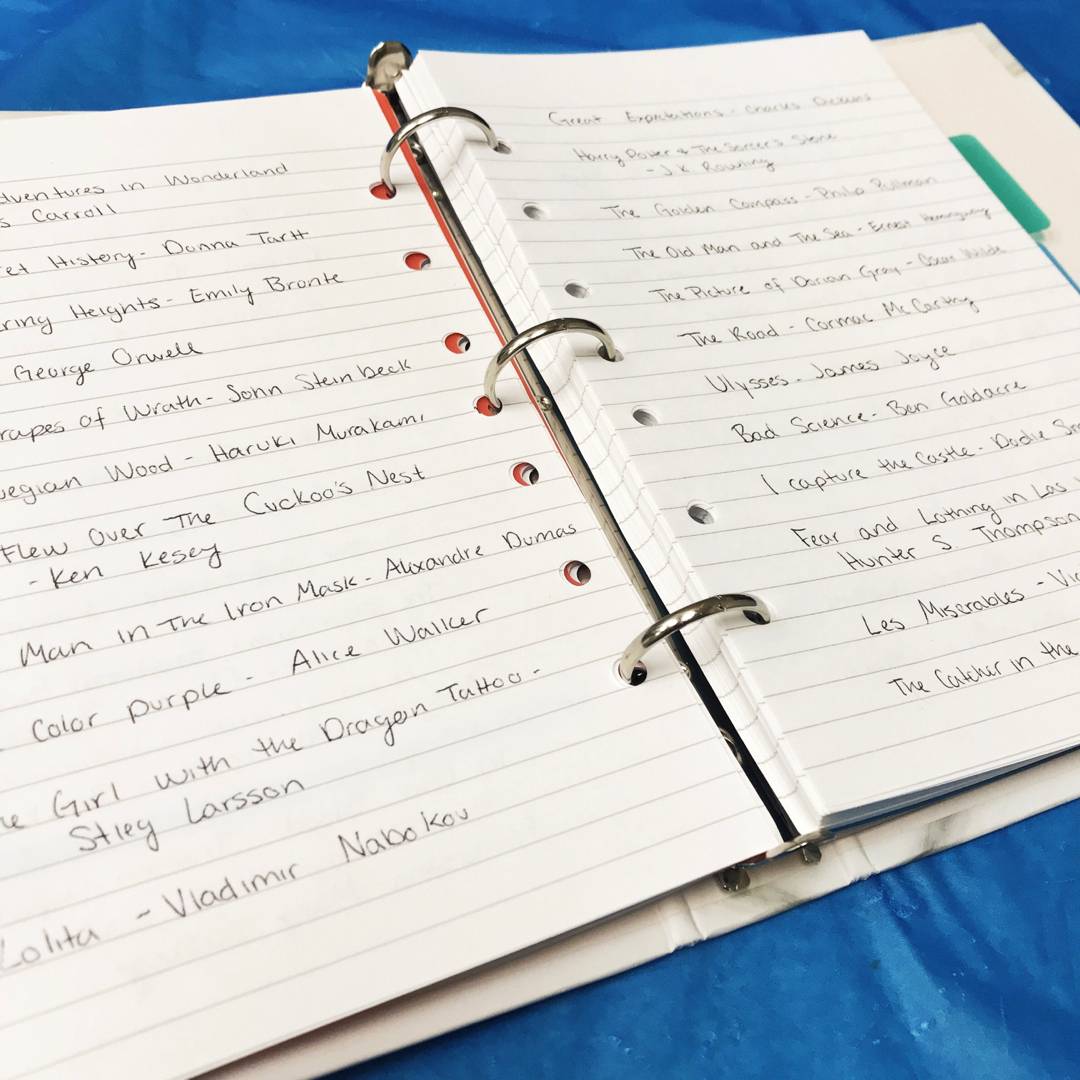 dventures in Wonderland
s Carroll
et History - Donna Tartt
ring Heights - Emily Bronte
George Orwell
rapes of Wrath - John Steinbeck
wegian Wood - Haruki Murakami
Flew Over The Cuckoo's Nest
- Ken Kesey
Man in The Iron Mask - Alixandre Dumas
Color purple - Alice Walker
e Girl with the Dragon Tattoo -
Stieg Larsson
Lolita - Vladimir Nabokov
Great Expectations - Charles Dickens
Harry Potter & The Sorcer's Stone
- J K Rowling
The Golden Compass - Philip Pullman
The Old Man and The Sea - Ernest Hemingway
The Picture of Dorian Gray - Oscar Wilde
The Road - Cormac McCarthy
Ulysses - James Joyce
Bad Science - Ben Goldacre
I capture the Castle - Dodie Sm
Fear and Lothing in Las V
Hunter S. Thompson
Les Miserables - Vic
The Catcher in the